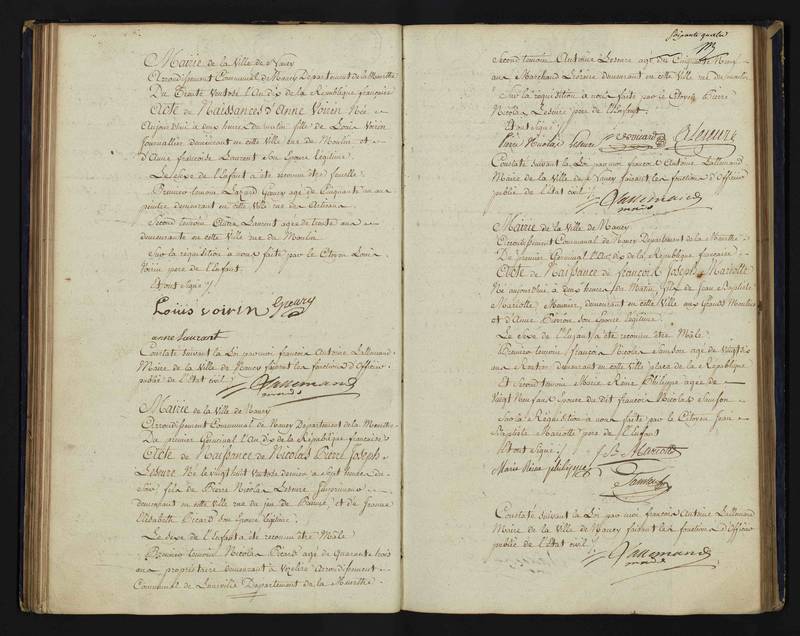 Mairie de la Ville de Nancy
Arrondissement Communal de Nancy Departement de la Meurthe
Du Trente Ventose l'An dix de la République françoise
Acte de Naissances d'Anne Voirin Née
Aujourd'hui à deux heures du matin fille de Louis Voirin
Journallier demeurant en cette Ville rue du Moulin et
d'Anne françoise Laurent Son Epouse légitime.
Le Sexe de l'Enfant a été reconnu être femelle.
Premier temoin Lazard Gouvy agé de Cinquante un ans
peintre demeurant en cette Ville rue des Artisans
Second temoin Anne Laurent agée de trente ans
demeurante en cette Ville rue du Moulin
Sur la réquisition à nous faite par le Citoyen Louis
Voirin pere de l'Enfant
Et ont Signé
Louis voirin
anne laurant
Constaté suivant la Loi par moi françois Antoine Lallemand
Maire de la Ville de Nancy faisant les fonctions d'Officier
public de l'Etat civil
Lallemand
maire
Mairie de la Ville de Nancy
Arrondissement Communal de Nancy Departement de la Meurthe
Du premier Germinal l'An dix de la République françoise
Acte de Naissance de Nicolas Pierre Joseph
Leseure Né le vingt huit Ventose dernier à Sept heures du
Soir fils de Pierre Nicolas Leseure Imprimeur
demeurant en cette Ville rue du jeu de Paume, et de Jeanne
Elisabeth Picard Son Epouse légitime.
Le Sexe de l'Enfant a été reconnu être Mâle
Premier temoin Nicolas Picard agé de Quarante trois
ans propriétaire demeurant à Vezelise Arrondissement
Communal de Lunéville Departement de la Meurthe
Soixante quatre
Second temoin Antoine Leseure agé de Cinquante Neuf
ans Marchand Libraire demeurant en cette Ville rue du moulin
Sur la réquisition à nous faite par le Citoyen Pierre
Nicolas Leseure pere de l'Enfant.
Et ont Signé
Pierre Nicolas Leseure
Leseure
Constaté suivant la Loi par moi françois Antoine Lallemand
Maire de la Ville de Nancy faisant les fonctions d'Officier
public de l'Etat civil
Lallemand
maire
Mairie de la Ville de Nancy
Arrondissement Communal de Nancy Departement de la Meurthe
Du premier Germinal l'An dix de la République françoise
Acte de Naissance de françois Joseph Mariotte
Né aujourd'hui à deux heures du Matin, fils de Jean Baptiste
Mariotte Meunier, demeurant en cette Ville aux Grands Moulins
et d'Anne Pierron Son Epouse légitime
Le Sexe de l'Enfant a été reconnu être Mâle.
Premier temoin françois Nicolas Samson agé de Vingt six
ans demeurant en cette Ville place de la République
Et Second temoin Marie Reine Philippe agée de
Vingt Neuf ans Epouse du dit françois Nicolas Samson
Sur la Réquisition à nous faite par le Citoyen Jean
Baptiste Mariotte pere de l'Enfant
Et ont Signé
J B Mariotte
Marie Reine philippe
Samson
Constaté suivant la Loi par moi françois Antoine Lallemand
Maire de la Ville de Nancy faisant les fonctions d'Officier
public de l'Etat civil
Lallemand
maire